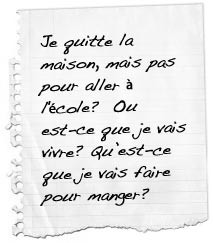 Je quitte la
maison, mais pas
pour aller à
l'école? Ou
est-ce que je vais
vivre? Qu'est-ce
que je vais faire
pour manger?